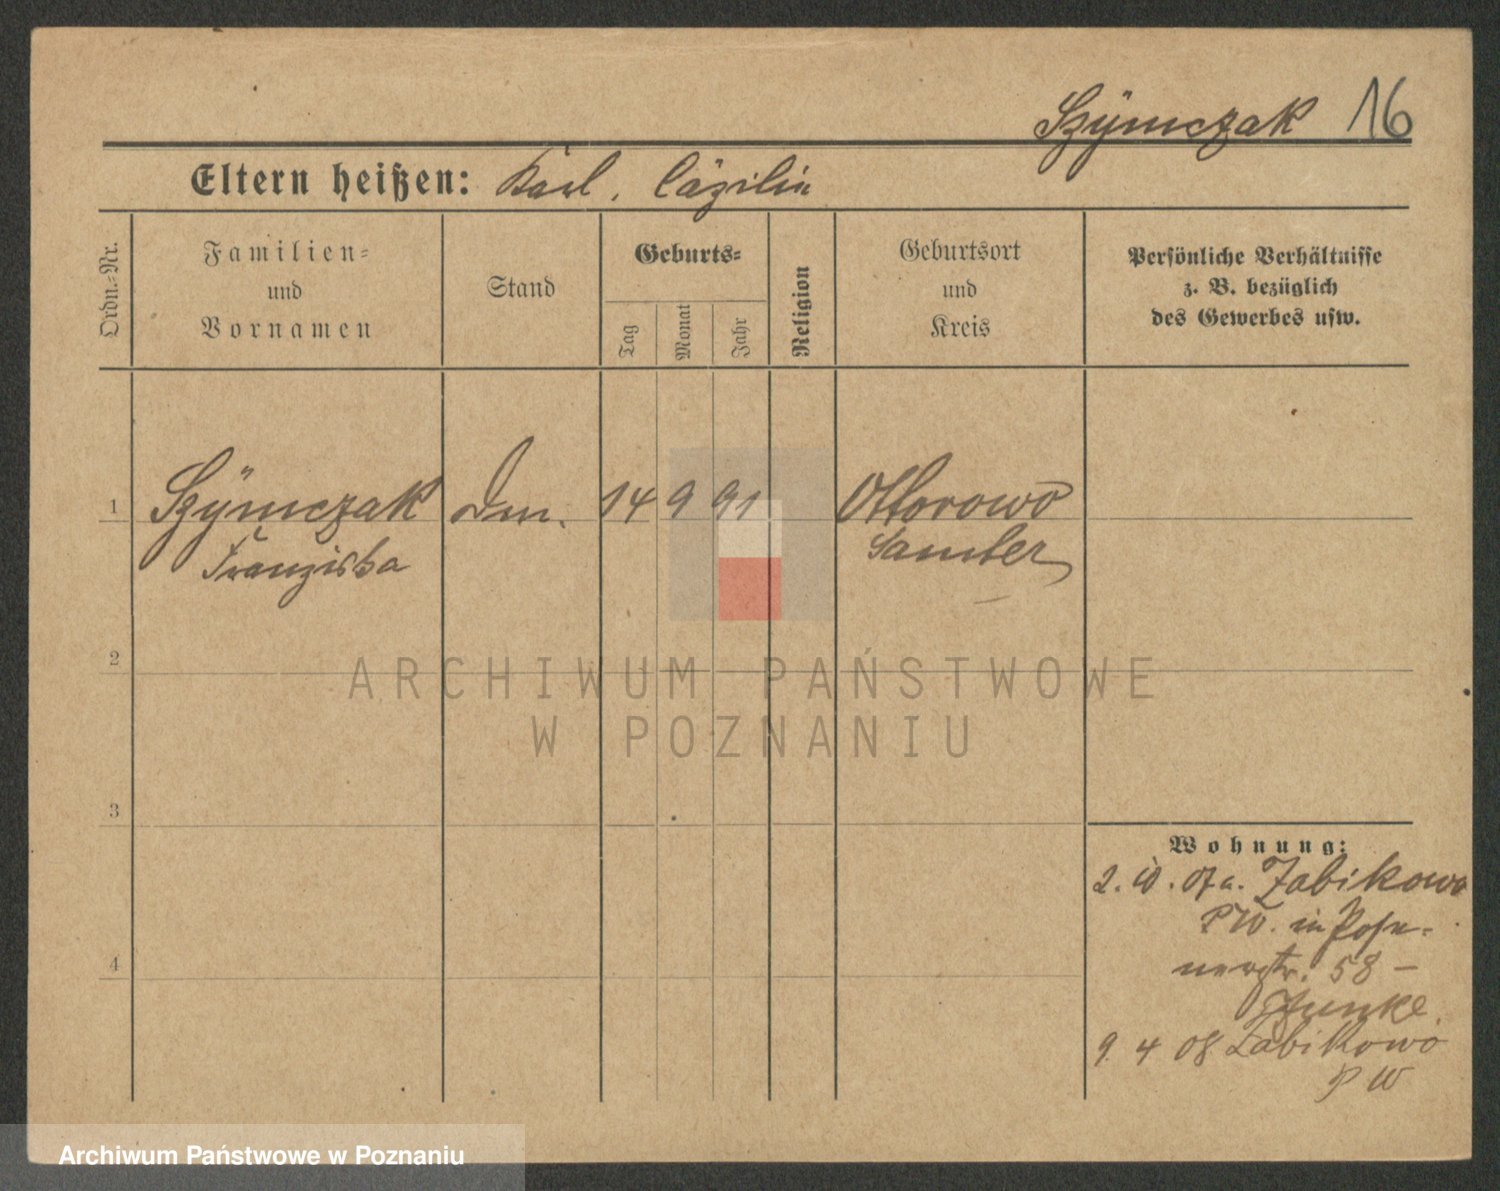 Szÿmczak 16
Eltern heißen: Karl, Cäzilia
Ordn.-Nr.
Familien-
und
Vornamen
Stand
Geburts-
Tag
Monat
Jahr
Religion
Geburtsort
und
Kreis
Persönliche Verhältnisse
z. B. bezüglich
des Gewerbes usw.
1 Szÿmczak Dm. 14 9 91 Ottorowo
Franziska Samter
2
ARCHIWUM PAŃSTWOWE
W POZNANIU
3
Wohnung:
2. 10. 07 a. Zabikowo
PW. in Pose-
nerstr. 58 -
4
9. 4 08 Zabikowo
P W
Archiwum Państwowe w Poznaniu